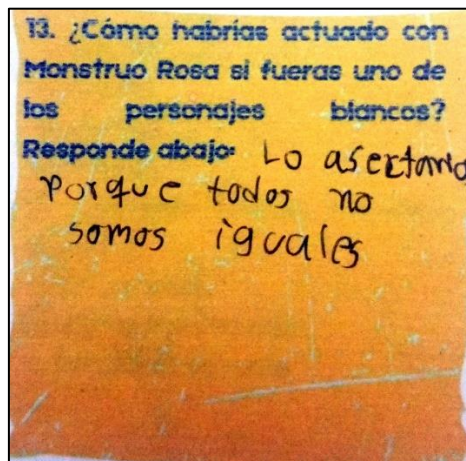 13. ¿Cómo habrías actuado con
Monstruo Rosa si fueras uno de
los personajes blancos?
Responde abajo: Lo asectamo
Porque todos no
somos iguales